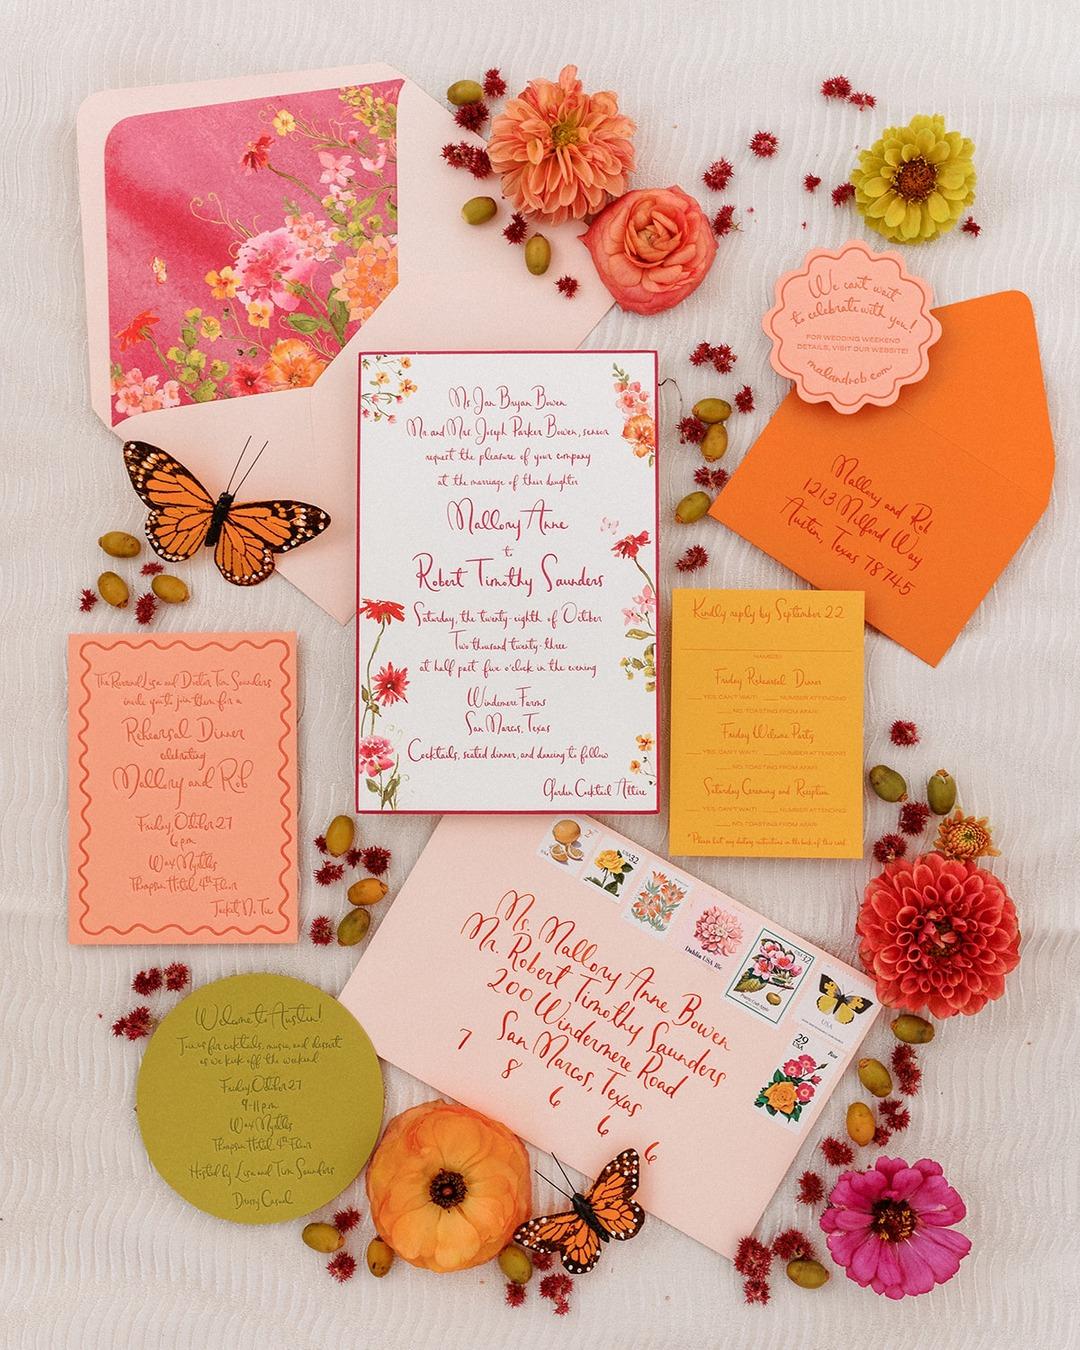 We can't wait
to celebrate with you!
FOR WEDDING WEEKEND
DETAILS, VISIT OUR WEBSITE!
malandrob.com
Ms. Jan Bryan Bowen
Mr. and Mrs. Joseph Parker Bowen, senior
request the pleasure of your company
at the marriage of their daughter
Mallory Anne
to
Robert Timothy Saunders
Saturday, the twenty-eighth of October
Two thousand twenty-three
at half past five o'clock in the evening
Windemere Farms
San Marcos, Texas
Cocktails, seated dinner, and dancing to follow
Garden Cocktail Attire
Mallory and Rob
1213 Milford Way
Austin, Texas 78745
Kindly reply by September 22
NAME(S)
Friday Rehearsal Dinner
YES, CAN'T WAIT! NUMBER ATTENDING
NO, TOASTING FROM AFAR!
Friday Welcome Party
YES, CAN'T WAIT! NUMBER ATTENDING
NO, TOASTING FROM AFAR!
Saturday Ceremony and Reception
YES, CAN'T WAIT! NUMBER ATTENDING
NO, TOASTING FROM AFAR!
*Please list any dietary restrictions on the back of this card.
The Reverend Lisa and Doctor Tim Saunders
invite you to join them for a
Rehearsal Dinner
celebrating
Mallory and Rob
Friday, October 27
6 p.m.
Wax Myrtles
Thompson Hotel 4th Floor
Jacket, No Tie
USA
2
USA 32
Dahlia USA 18c
USA 32
USA
29
USA
Ms. Mallory Anne Bowen
Mr. Robert Timothy Saunders
200 Windermere Road
San Marcos, Texas
7 8 6 6 6
Welcome to Austin!
Join us for cocktails, music, and dessert
as we kick off the weekend
Friday, October 27
9-11 p.m.
Wax Myrtles
Thompson Hotel 4th Floor
Hosted by Lisa and Tim Saunders
Dressy Casual